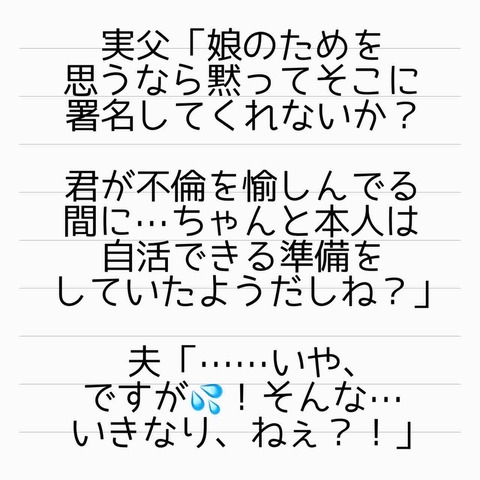 実父「娘のためを
思うなら黙ってそこに
署名してくれないか？
君が不倫を愉しんでる
間に…ちゃんと本人は
自活できる準備を
していたようだしね？」
夫「……いや、
ですが💦！そんな…
いきなり、ねぇ？！」